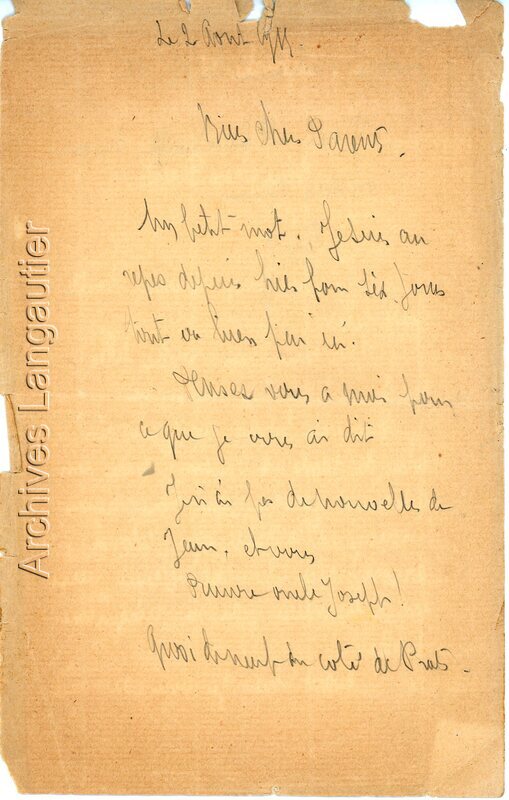 Le 2 Aout 1915.
Bien chers Parents,
Un petit mot. Je suis au
repos depuis hier pour six jours
tout va bien par ici.
Pensez vous a moi pour
ce que je vous ai dit
J'en ai pas de nouvelles de
Jean, et vous
Pauvre oncle Joseph!
Quoi de neuf du coté de Prats.
Archives Langautier